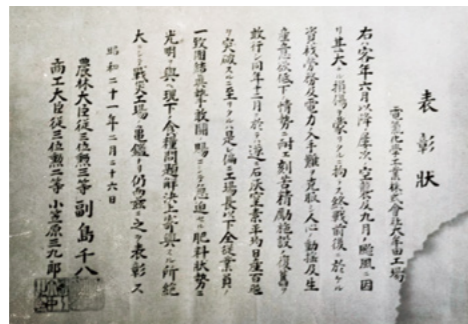 表彰狀
電氣化学工業株式会社大牟田工場
右ハ客年六月以降屢次ノ空襲及九月ノ颱風ニ因
リ甚大ナル損傷ヲ蒙リタルニ拘ラズ終戦前後ニ於ケル
資材労務及電力ノ入手難ヲ克服シ人心ノ動揺及生
産意欲低下ノ情勢ニ耐エ刻苦精励施設ノ復舊ヲ
敢行シ同年十二月ニ於テハ遂ニ石灰窒素平均日産百瓲
ヲ突破スルニ至リタルハ是レ偏ニ工場長以下全従業員ノ
一致団結眞摯敢闘ノ賜ニシテ急迫セル肥料状勢ニ
光明ヲ與ヘ現下ノ食糧問題解決上ニ寄與スル所絶
大ニシテ戦災工場ノ亀鑑タリ仍而茲ニ之ヲ表彰ス
昭和二十一年二月二十六日
農林大臣従三位勲三等 副島千八
商工大臣従三位勲二等 小笠原三九郎